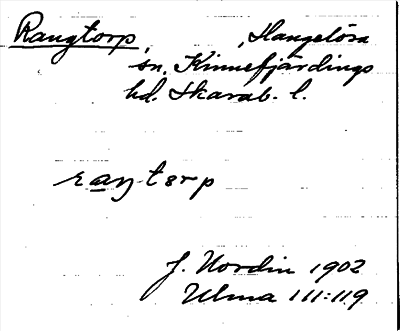 Rangtorp, , Slangelösa
sn, Kinnefjärdings
hd. Skarab. l.
raŋtorp
J. Nordin 1902
Ulma 111:119